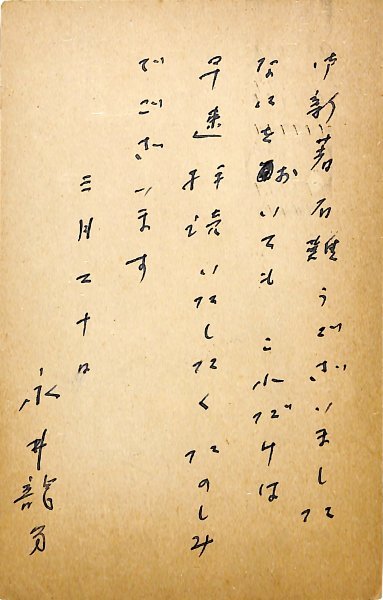 御新著有難うございました
なにをおいてもこれだけは
早速拝読いたしたくたのしみ
でございます
三月二十日
永井龍男